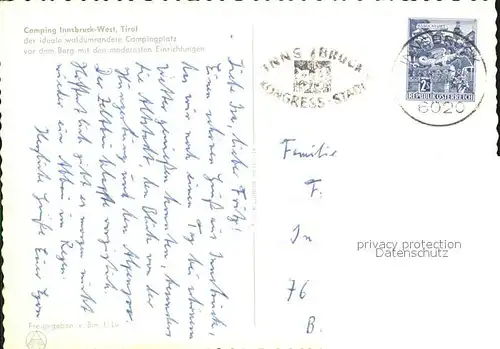 Camping Innsbruck-West, Tirol
der ideale waldumrandete Campingplatz
vor dem Berg mit den modernsten Einrichtungen
INNSBRUCK
KONGRESS-STADT
6020
2
REPUBLIK ÖSTERREICH
Liebe Ise, lieber Fritz!
Einen schönen Gruß aus Innsbruck,
den wir noch einen Tag bei schönem
Wetter genießen konnten, besonders
die Altstadt, den Blick von der
Hungerburg und den Alpenzoo.
Der Zeltaufbau klappte vorzüglich.
Hoffentlich gibt es morgen nicht
wieder ein Abbau im Regen.
Herzliche Grüße Euer Egon
Familie
F.
In
76
B.
privacy protection
Datenschutz
Freigegeben v. Bm. f. Lv.